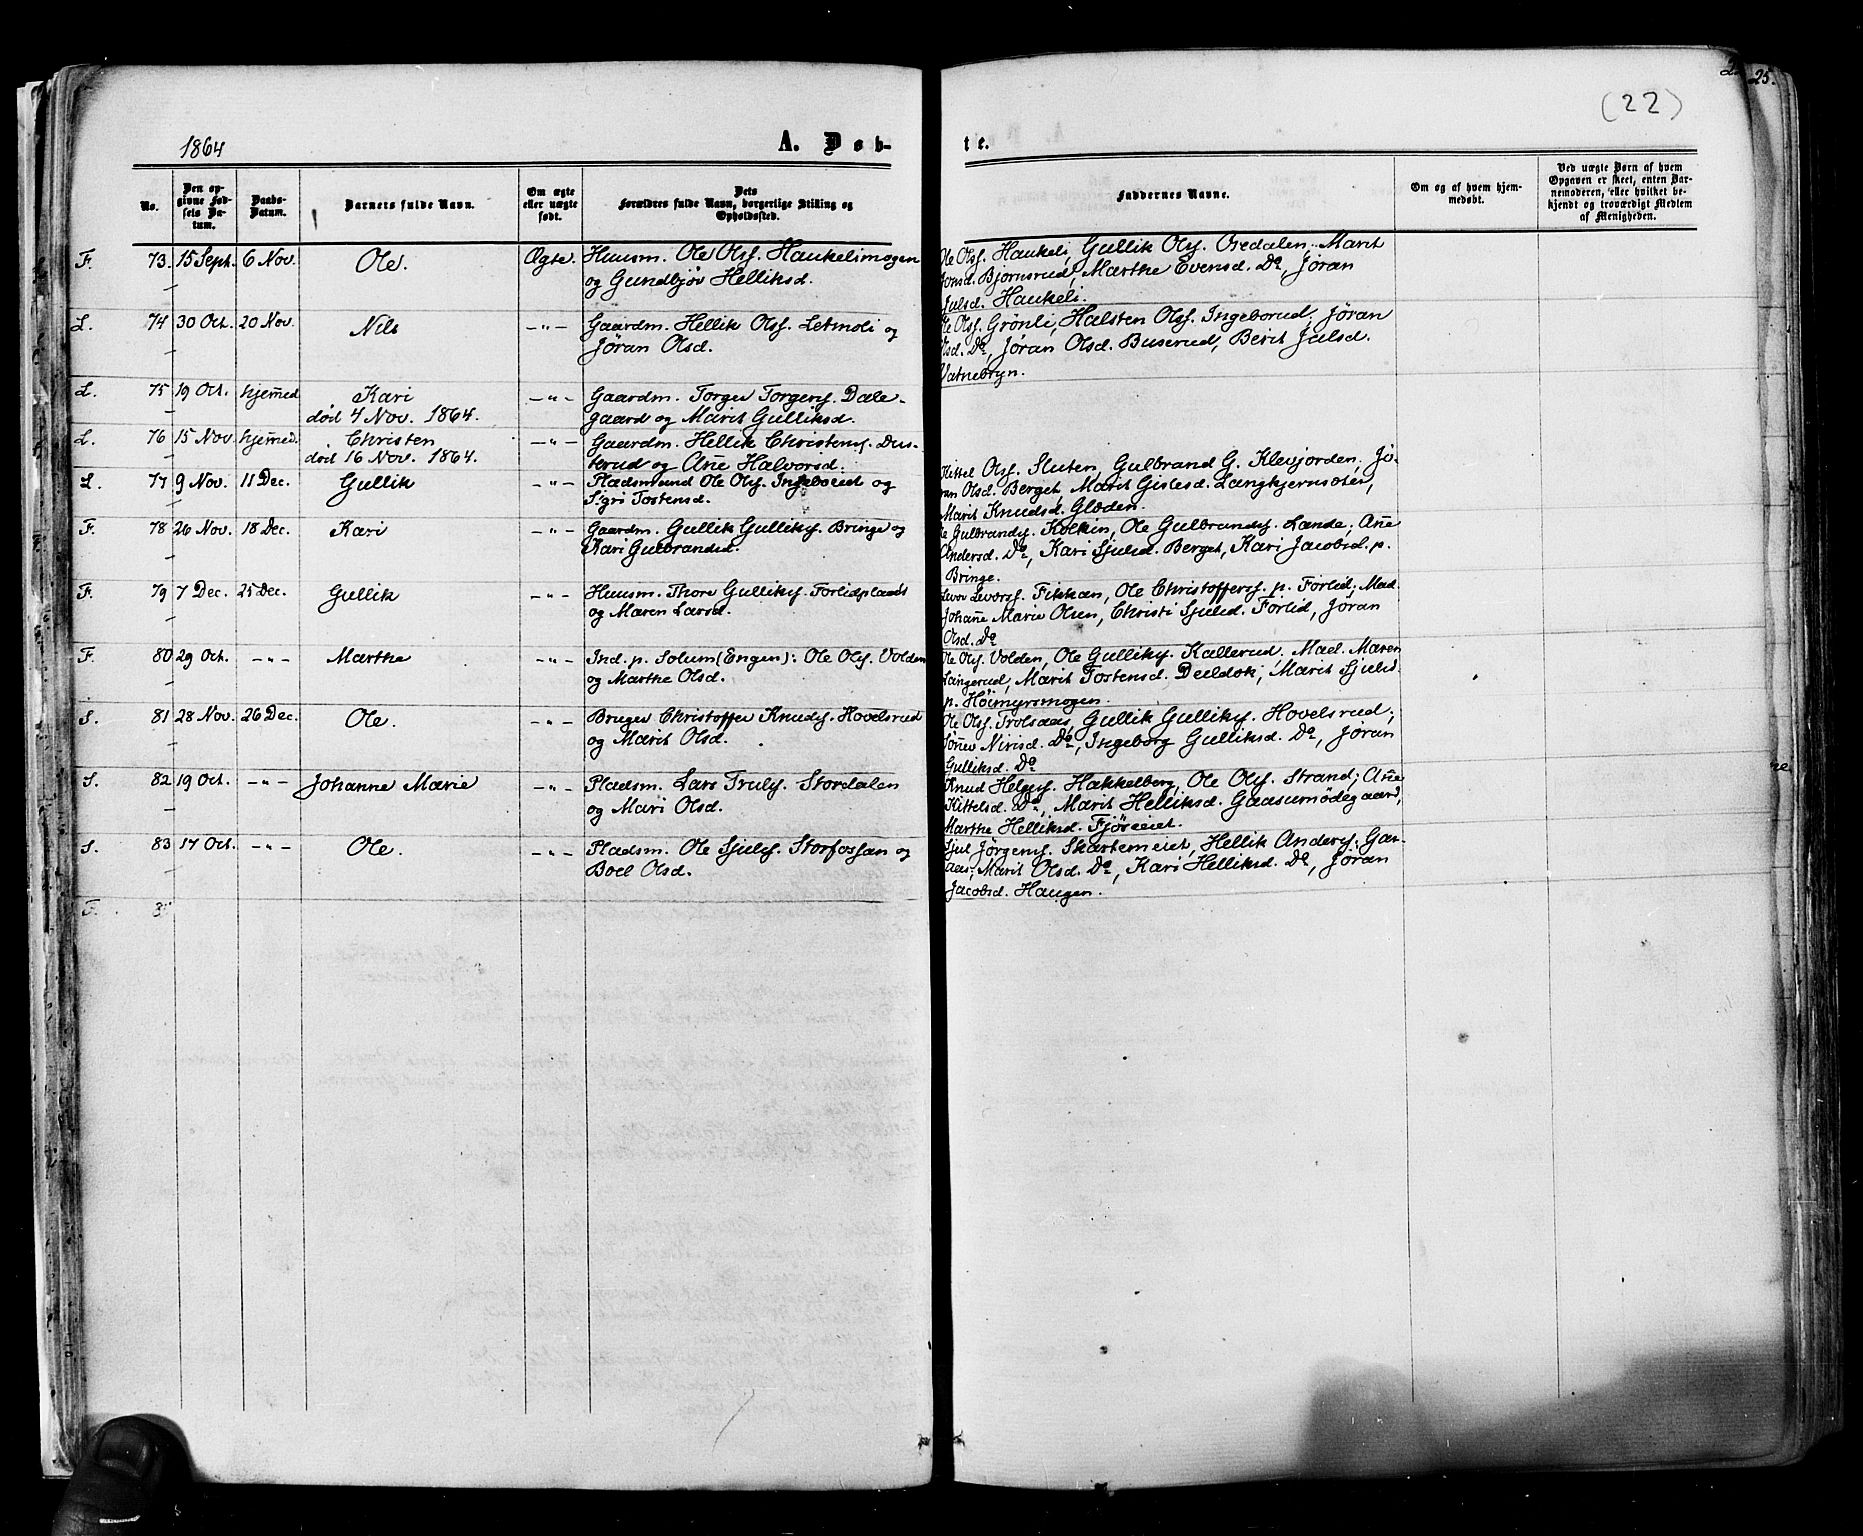 25.
(22)
1864
A. Døb-
te.
No.
Den op-
givne Fød-
sels Da-
tum.
Daabs-
Datum.
Barnets fulde Navn.
Om ægte
eller uægte
født.
Dets
Forældres fulde Navn, borgerlige Stilling og
Opholdssted.
Faddernes Navne.
Om og af hvem hjem-
medøbt.
Ved uægte Børn af hvem
Opgaven er skeet, enten Bar-
nemoderen, eller hvilket be-
kjendt og troværdigt Medlem
af Menigheden.
F. 73. 15 Sept. 6 Nov. Ole. Ægte. Huusm. Ole Olss. Haukelimogen
og Gundbjør Helliksd.
Ole Olss. Haukeli, Gullik Olss. Osedalen, Marit
Jonsd. Bjørnsrud, Marthe Evensd. Do, Jøran
Julsd. Haukeli.
L. 74 30 Oct. 20 Nov. Nils –"– Gaardm. Hellik Olss. Letmoli og
Jøran Olsd.
Ole Olss. Grønli, Halsten Olss. Ingeborud, Jøran
Olsd. Do, Jøran Olsd. Buserud, Berit Julsd.
Vatnebryn.
L. 75 19 Oct. hjemmed Kari –"– Gaardm. Torger Torgers. Dale-
død 4 Nov. 1864. gaard og Marit Gulliksd.
L. 76 15 Nov. hjemmed. Christen –"– Gaardm. Hellik Christens. Dus-
død 16 Nov. 1864. terud og Ane Halvorsd.
L. 77 9 Nov. 11 Dec. Gullik –"– Pladsmand Ole Ols. Ingeboreiet og
Sigri Tostensd.
Kittel Olss. Sluten, Gulbrand G. Klevjorden, Jø-
ran Olsd. Berget, Marit Gislesd. Langkjernsoter,
Marit Knudsd. Gloden.
F. 78 26 Nov. 18 Dec. Kari –"– Gaardm. Gullik Gulliks. Bringe og
Kari Gulbrandsd.
Ole Gulbrands. Kolkin, Ole Gulbrands. Lande, Ane
Andersd. Do, Kari Sjulsd. Berget, Kari Jacobsd. p.
Bringe.
F. 79 7 Dec. 25 Dec. Gullik –"– Huusm. Thore Gulliks. Forlidplads
og Maren Larsd.
Levor Levorss. Fikkan, Ole Christofferss. p. Forlid, Mad.
Johanne Marie Olsen, Christi Sjulsd. Forlid, Jøran
Olsd. Do
F. 80 29 Oct. –"– Marthe –"– Ind. p. Solum (Engen): Ole Ols. Volden
og Marthe Olsd.
Ole Ols. Volden, Ole Gulliks. Kallerud, Mad. Maren
Langerud, Marit Tostensd. Deeldok, Marit Sjulsd.
p. Høimyrsmogen.
S. 81 28 Nov. 26 Dec. Ole. –"– Bruger Christoffer Knuds. Hovelsrud
og Marit Olsd.
Ole Olss. Trolsaas, Gullik Gulliks. Hovelsrud,
Sønev Nirisd. Do, Ingeborg Gulliksd. Do, Jøran
Gulliksd. Do
S. 82 19 Oct. –"– Johanne Marie –"– Pladsm. Lars Truls. Stordalen
og Mari Olsd.
Knud Helges. Hakkelberg, Ole Ols. Strand, Ane
Kittelsd. Do, Marit Helliksd. Gaasumødegaard,
Marthe Helliksd. Fjøseiet.
S. 83 17 Oct. –"– Ole. –"– Pladsm. Ole Sjuls. Storfossan og
Boel Olsd.
Sjul Jørgens. Skarterneiet, Hellik Anders. Gar-
aas, Marit Olsd. Do, Kari Helliksd. Do, Jøran
Jacobsd. Haugen.
F.